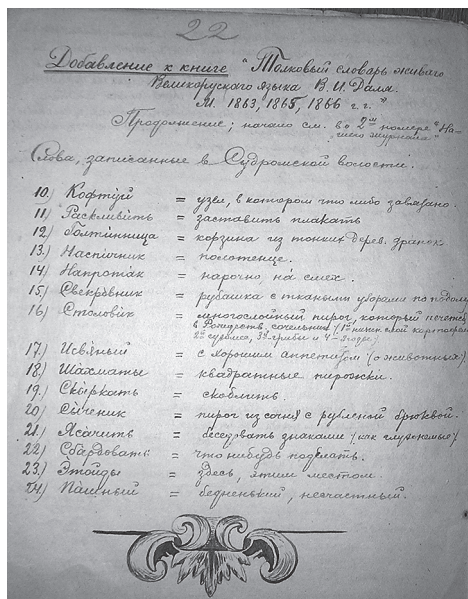 22
Добавление к книге "Толковый словарь живаго
Великорускаго языка В. И. Даля.
М. 1863, 1865, 1866 г. г."
Продолжение; начало см. во 2ом номере "На-
шего журнала"
Слова, записанные в Судромской волости.
10.) Кофтуй = узел, в котором что либо завязано.
11.) Раскливить = заставить плакать
12.) Голтинница = корзина из тонких дерев. дранок
13.) Наспичник = полотенце.
14.) Напротак = нарочно, на смех.
15.) Свекровник = рубашка с тканыли узорами по подолу
16.) Столовик = многослойный пирог, который печется
в Рождеств. сочельник (1й нижн. слой картофель
2ой 3й грибы и 4й ягоды)
17.) = с хорошим аппетитом (о животных).
18.) Шахматы = квадратные пирожки.
19.) Скыркать = скоблить.
20.) Сыченик = пирог из сочня с рубленой брюквой.
21.) Ясачить = беседовать знаками (как глухонемые)
22.) Сбардовать = что нибудь поделать.
23.) Этойды = здесь, этим местом.
24.) Пашный = бедненький, несчастный.